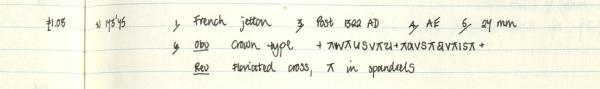 ±1.05 N 175'45 1, French jetton 3, Post 1322 AD 4, AE 5, 24 mm
6, Obv Crown type
Rev Floriated cross, π in spandrels